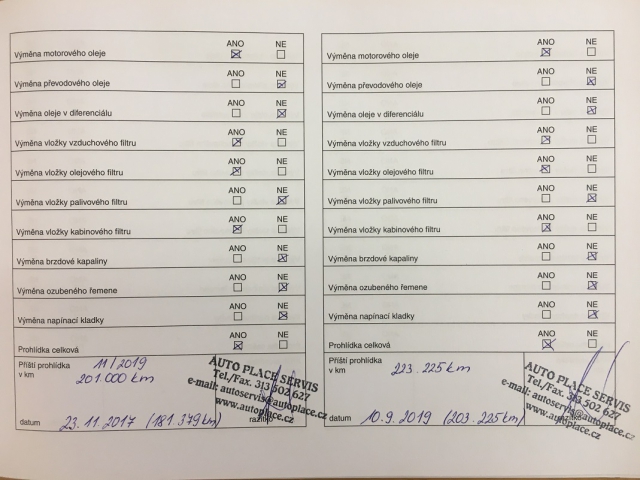 ANO NE
Výměna motorového oleje ☒ ☐
ANO NE
Výměna převodového oleje ☐ ☒
ANO NE
Výměna oleje v diferenciálu ☐ ☒
ANO NE
Výměna vložky vzduchového filtru ☒ ☐
ANO NE
Výměna vložky olejového filtru ☒ ☐
ANO NE
Výměna vložky palivového filtru ☐ ☒
ANO NE
Výměna vložky kabinového filtru ☒ ☐
ANO NE
Výměna brzdové kapaliny ☐ ☒
ANO NE
Výměna ozubeného řemene ☐ ☒
ANO NE
Výměna napínací kladky ☐ ☒
ANO NE
Prohlídka celková ☒ ☐
Příští prohlídka 11/2019
v km 201.000 km
AUTO PLACE SERVIS
Tel./Fax. 313 502 627
e-mail: autoservis@autoplace.cz
www.autoplace.cz
datum 23.11.2017 (181.379km) razítko
ANO NE
Výměna motorového oleje ☒ ☐
ANO NE
Výměna převodového oleje ☐ ☒
ANO NE
Výměna oleje v diferenciálu ☐ ☒
ANO NE
Výměna vložky vzduchového filtru ☒ ☐
ANO NE
Výměna vložky olejového filtru ☒ ☐
ANO NE
Výměna vložky palivového filtru ☐ ☒
ANO NE
Výměna vložky kabinového filtru ☒ ☐
ANO NE
Výměna brzdové kapaliny ☐ ☒
ANO NE
Výměna ozubeného řemene ☐ ☒
ANO NE
Výměna napínací kladky ☐ ☒
ANO NE
Prohlídka celková ☒ ☐
Příští prohlídka 223.225km
v km
AUTO PLACE SERVIS
Tel./Fax. 313 502 627
e-mail: autoservis@autoplace.cz
www.autoplace.cz
datum 10.9.2019 (203.225km)